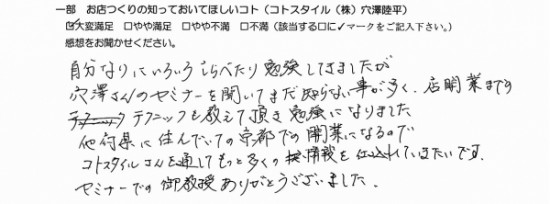 一部　お店つくりの知っておいてほしいコト（コトスタイル（株）穴澤陸平）
☑大変満足　□やや満足　□やや不満　□不満（該当する□に✓マークをご記入下さい。）
感想をお聞かせください。
自分なりにいろいろしらべたり勉強してきましたが
穴澤さんのセミナーを聞いてまだ知らない事が多く、店開業までの
テクニックも教えて頂き勉強になりました
他府県に住んでいての京都での開業になるので
コトスタイルさんを通してもっと多くの情報を仕入れていきたいです。
セミナーでの御教授ありがとうございました.